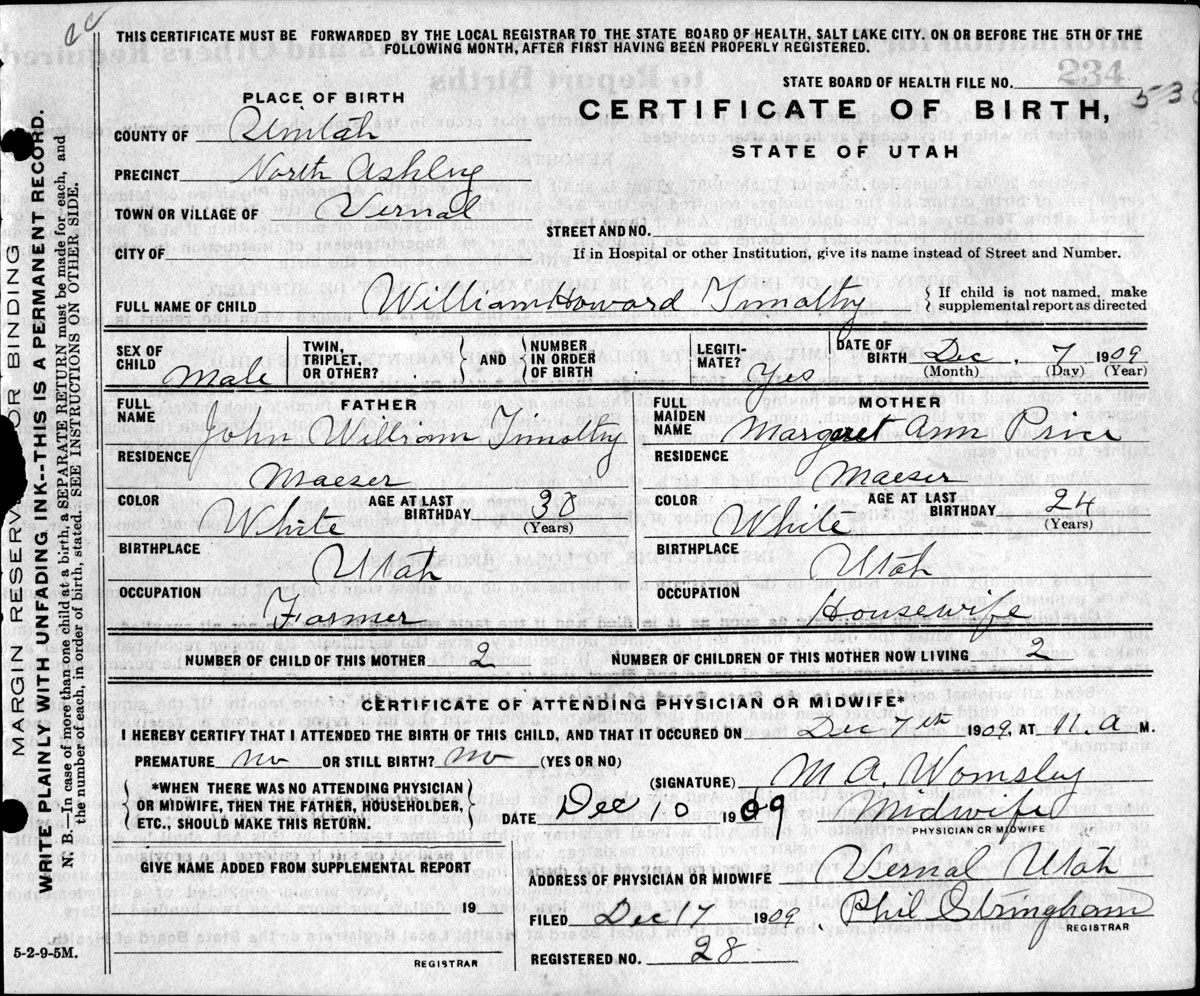 THIS CERTIFICATE MUST BE FORWARDED BY THE LOCAL REGISTRAR TO THE STATE BOARD OF HEALTH, SALT LAKE CITY. ON OR BEFORE THE 5TH OF THE
FOLLOWING MONTH, AFTER FIRST HAVING BEEN PROPERLY REGISTERED.
234
STATE BOARD OF HEALTH FILE NO.
PLACE OF BIRTH
CERTIFICATE OF BIRTH,
STATE OF UTAH
COUNTY OF Uintah
PRECINCT North Ashley
TOWN OR VILLAGE OF Vernal
STREET AND NO.
CITY OF
If in Hospital or other Institution, give its name instead of Street and Number.
FULL NAME OF CHILD William Howard Timothy
If child is not named, make
supplemental report as directed
SEX OF CHILD Male TWIN, TRIPLET, OR OTHER? AND NUMBER IN ORDER OF BIRTH LEGITI-MATE? Yes DATE OF BIRTH Dec. 7 1909
(Month) (Day) (Year)
FATHER
FULL NAME John William Timothy
RESIDENCE
Maeser
COLOR White AGE AT LAST BIRTHDAY 30
(Years)
BIRTHPLACE
Utah
OCCUPATION
Farmer
MOTHER
FULL MAIDEN NAME Margaret Ann Price
RESIDENCE
Maeser
COLOR White AGE AT LAST BIRTHDAY 24
(Years)
BIRTHPLACE
Utah
OCCUPATION
Housewife
NUMBER OF CHILD OF THIS MOTHER 2 NUMBER OF CHILDREN OF THIS MOTHER NOW LIVING 2
CERTIFICATE OF ATTENDING PHYSICIAN OR MIDWIFE*
I HEREBY CERTIFY THAT I ATTENDED THE BIRTH OF THIS CHILD, AND THAT IT OCCURED ON Dec 7th 1909, AT 11. A M.
PREMATURE no OR STILL BIRTH? no (YES OR NO)
*WHEN THERE WAS NO ATTENDING PHYSICIAN
OR MIDWIFE, THEN THE FATHER, HOUSEHOLDER,
ETC., SHOULD MAKE THIS RETURN
(SIGNATURE) M A. Womsley
DATE Dec 10 1909 Midwife
PHYSICIAN OR MIDWIFE
GIVE NAME ADDED FROM SUPPLEMENTAL REPORT
19
REGISTRAR
ADDRESS OF PHYSICIAN OR MIDWIFE Vernal Utah
FILED Dec 17 1909 Phil Stringham
REGISTRAR
REGISTERED NO. 28
5-2-9-5M.
MARGIN RESERVED FOR BINDING
WRITE PLAINLY WITH UNFADING INK--THIS IS A PERMANENT RECORD.
N. B.—In case of more than one child at a birth, a SEPARATE RETURN must be made for each, and
the number of each, in order of birth, stated. SEE INSTRUCTIONS ON OTHER SIDE.